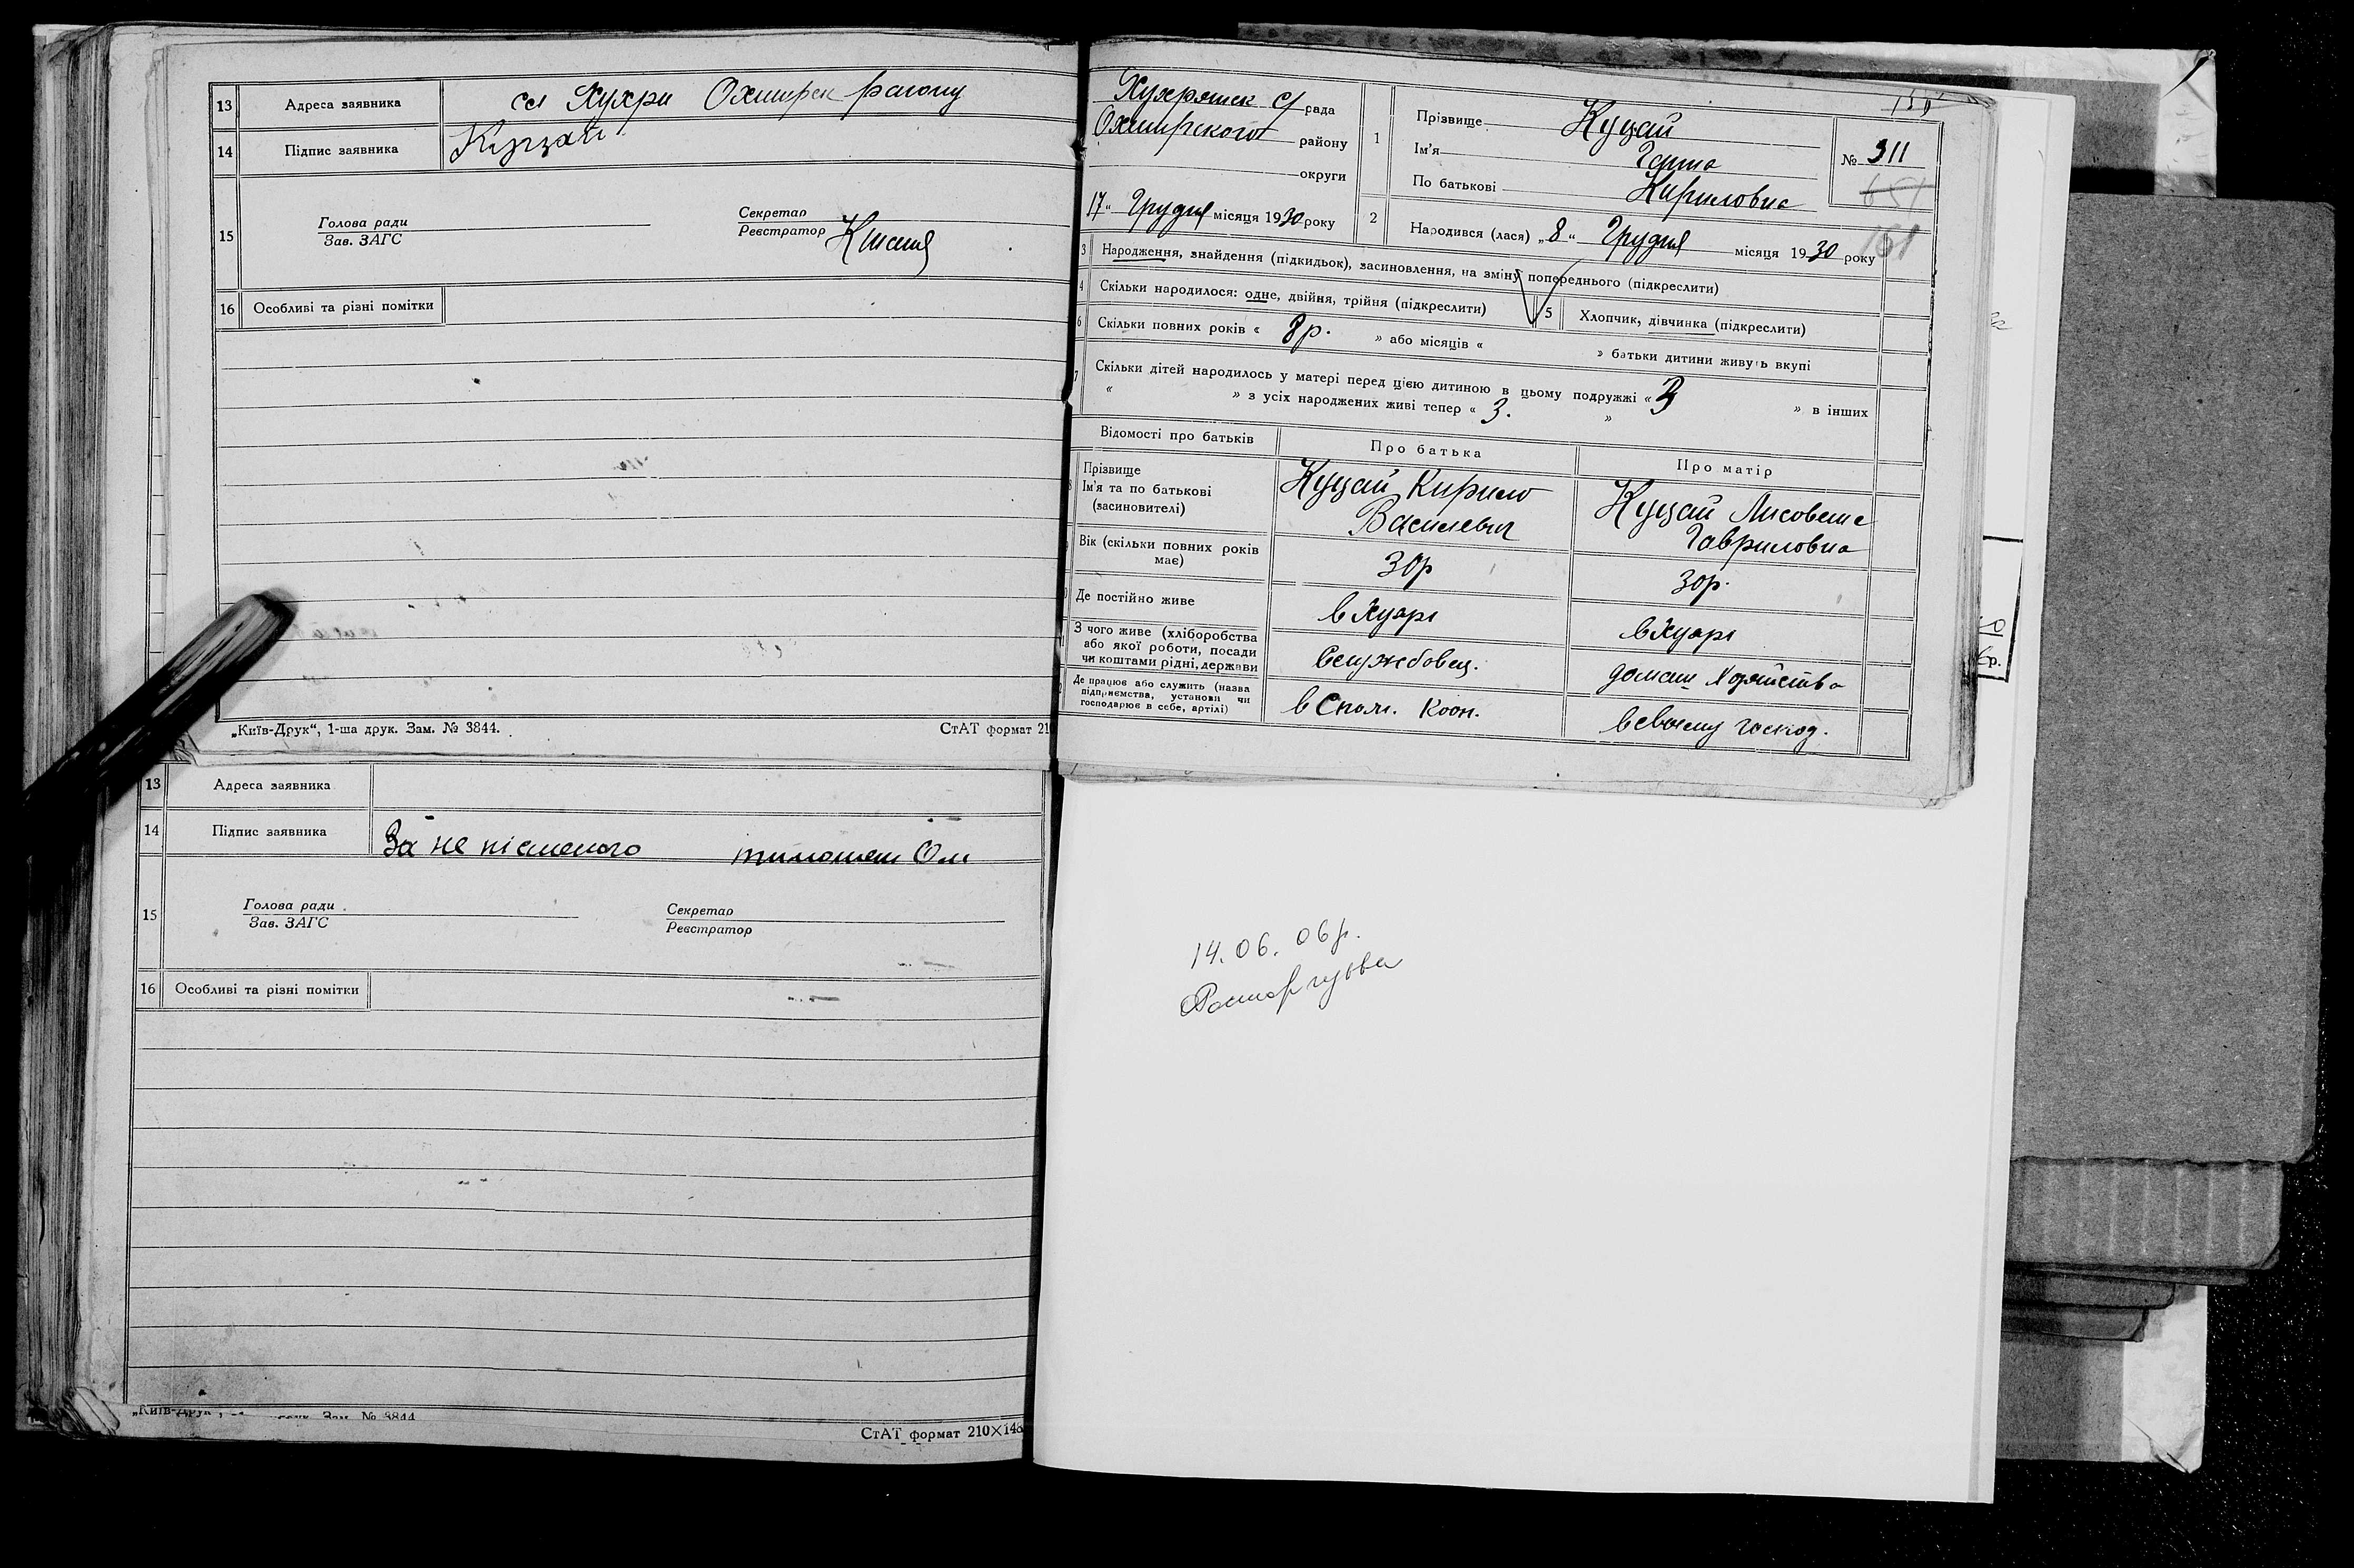 13 Адреса заявника сел Хухри Охтирск району
14 Підпис заявника Куцай
15 Голова ради Зав. ЗАГС Секретар Реєстратор
16 Особливі та різні помітки
„Київ-Друк“, 1-ша друк. Зам. № 3844. СтАТ формат 21
13 Адреса заявника
14 Підпис заявника За не пісьменого
15 Голова ради Зав. ЗАГС Секретар Реєстратор
16 Особливі та різні помітки
„Київ-Друк“, Зам. № 3844
СтАТ формат 210×148
Хухрянск с/рада
Охтирского району
округи
17“ Грудня місяця 1930 року
1 Прізвище Куцай
Ім'я Ганна
По батькові Кириловна
№ 311
2 Народився (лася) „8“ Грудня місяця 1930 року
3 Народження, знайдення (підкидьок), засиновлення, на зміну попереднього (підкреслити)
4 Скільки народилося: одне, двійня, трійня (підкреслити) 5 Хлопчик, дівчинка (підкреслити)
6 Скільки повних років « 8р. » або місяців « » батьки дитини живуть вкупі
7 Скільки дітей народилось у матері перед цією дитиною в цьому подружжі « 3 » в інших
« » з усіх народжених живі тепер « 3. »
Відомості про батьків Про батька Про матір
8 Прізвище Ім'я та по батькові (засиновителі) Куцай Кирило Василевич Куцай Лисовета Гавриловна
Вік (скільки повних років має) 30р 30р.
Де постійно живе в Хухрі в Хухрі
З чого живе (хліборобства або якої роботи, посади чи коштами рідні, держави вслужбовец. домаш хозяйства
Де працює або служить (назва підприємства, установи чи господарює в себе, артілі) в Спож. Кооп. в своєму господ.
14.06.06р.